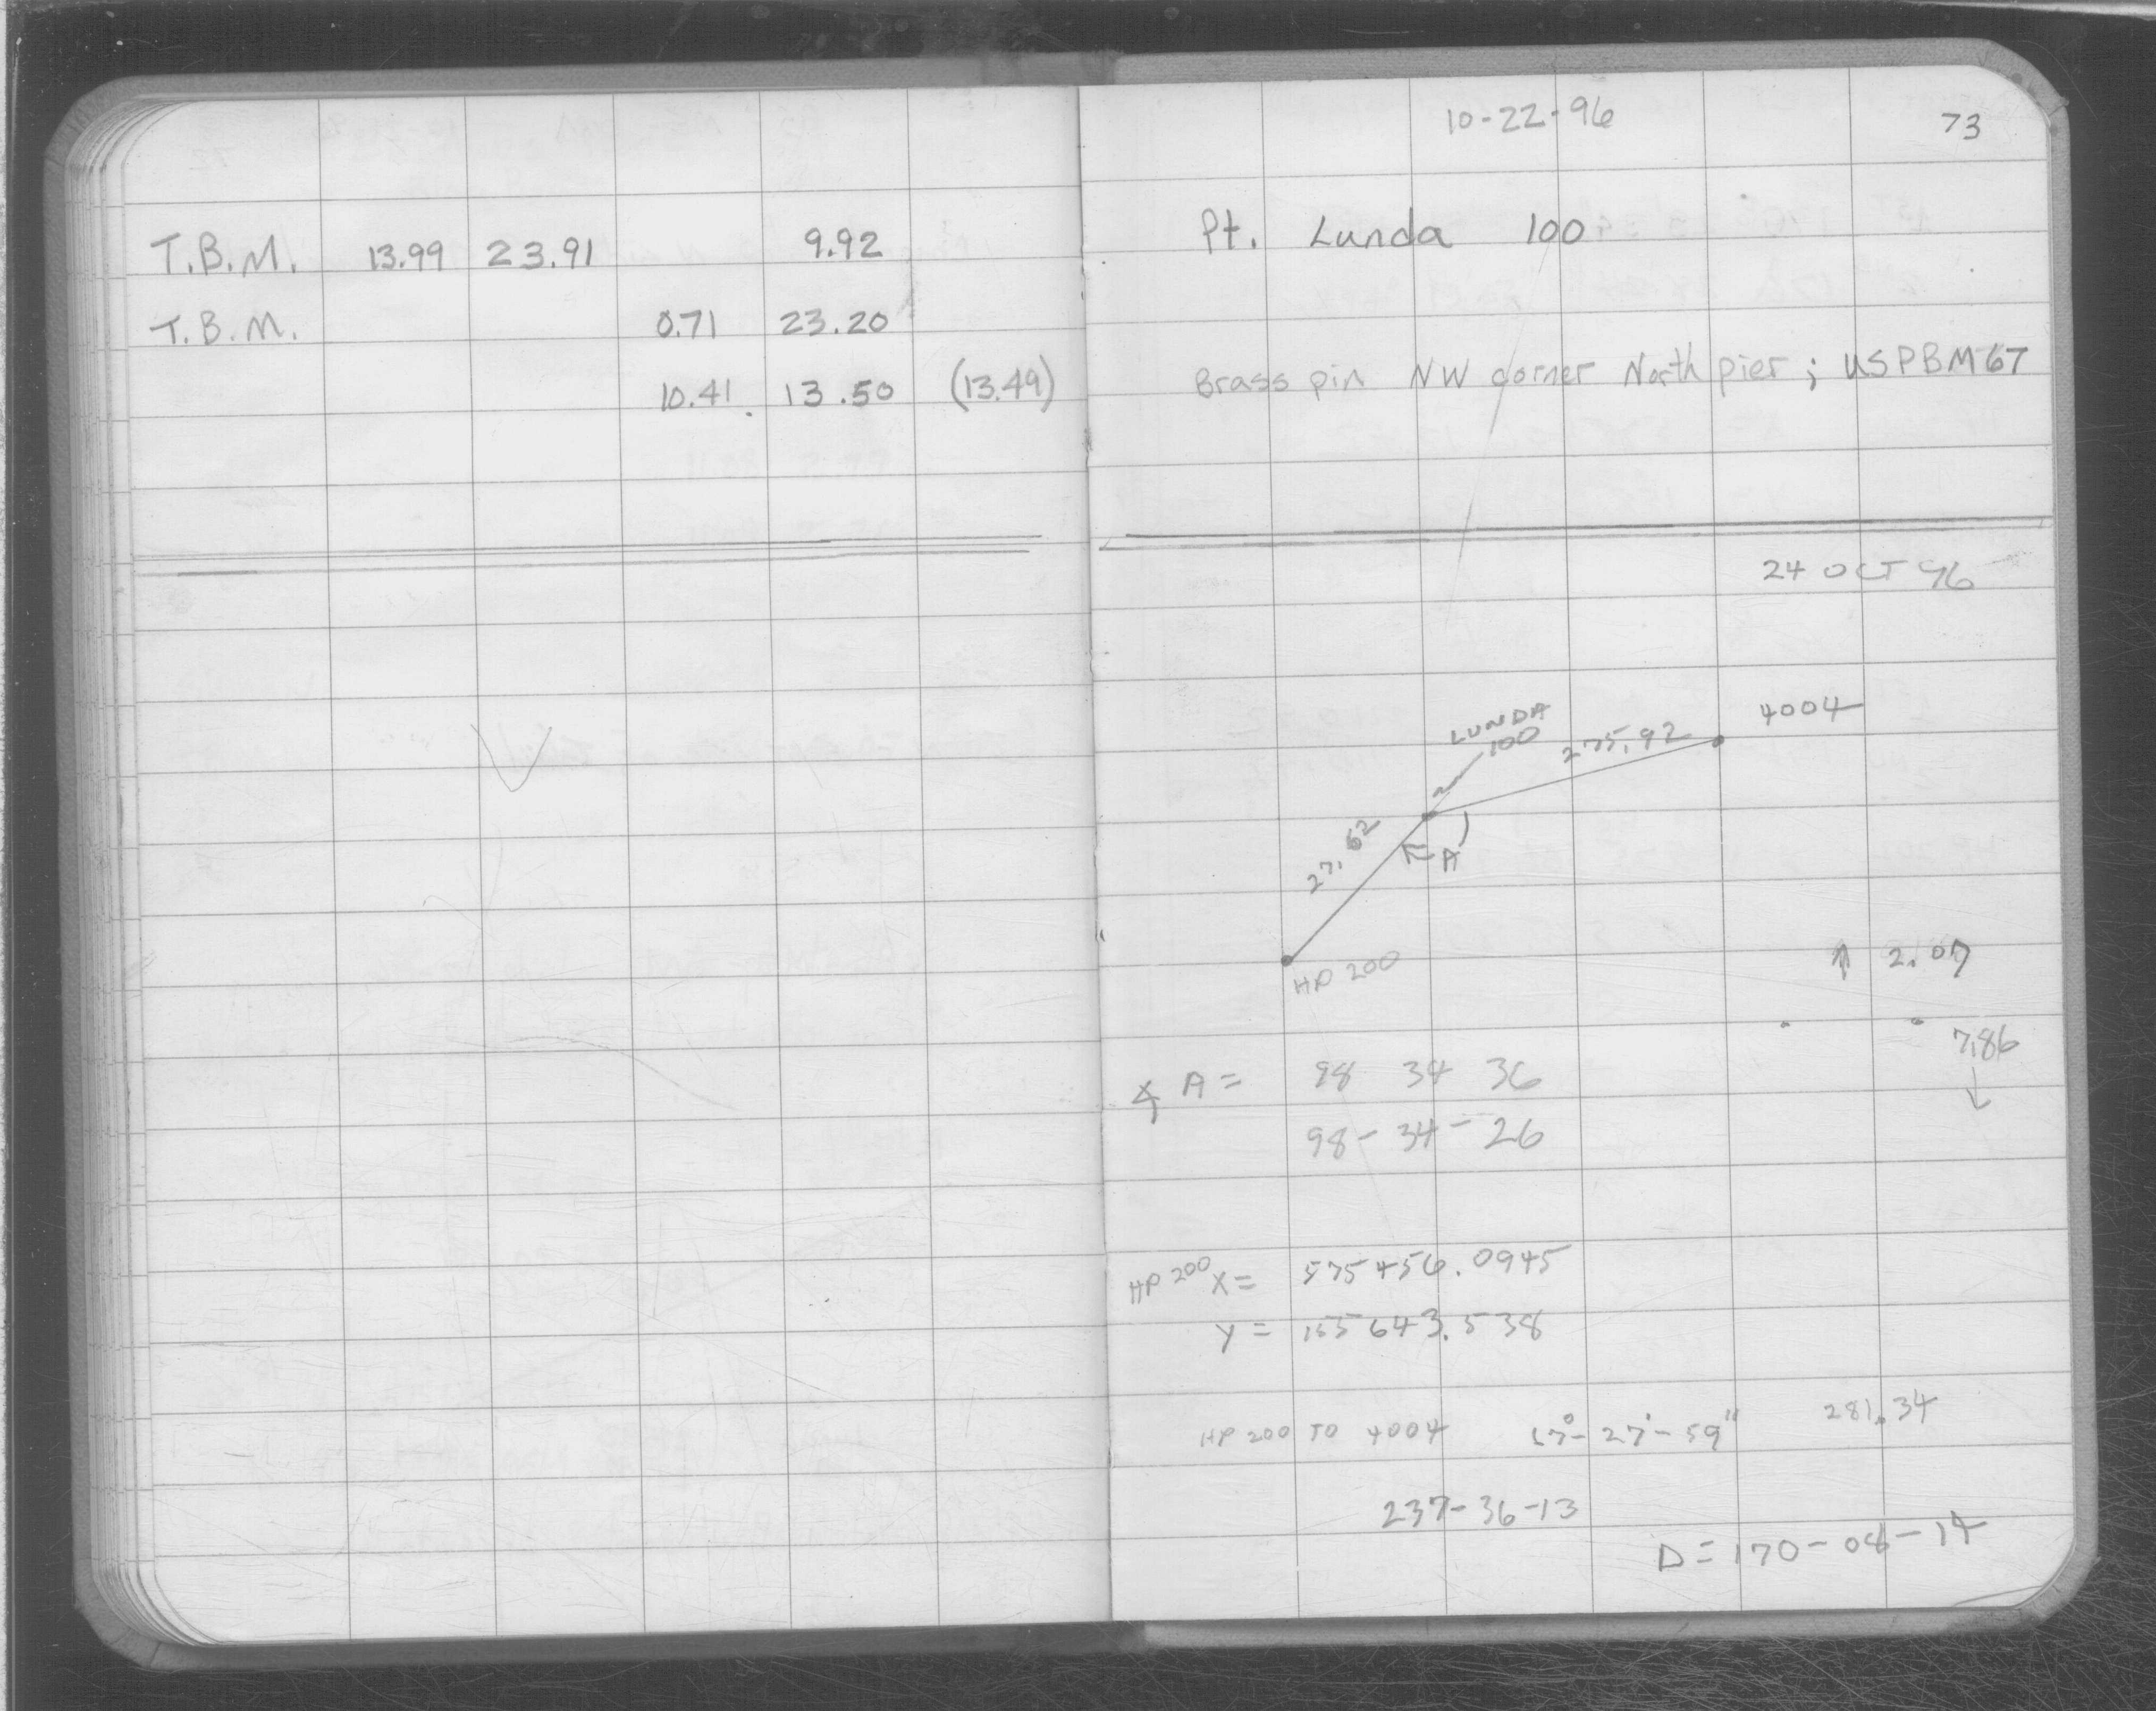 T.B.M. 13.99 23.91 9.92
T.B.M. 0.71 23.20
10.41 13.50 (13.49)
10-22-96 73
Pt. Lunda 100
Brass pin NW corner North pier; USPBM67
24 OCT 96
4004
LUNDA
100
275.92
27.62
A
HP 200
↑ 2.07
7.86
↓
∡ A = 98 34 36
98-34-26
HP 200 X = 575456.0945
Y = 155643.538
HP 200 TO 4004 67°-27'-59" 281.34
237-36-13
D = 170-08-14